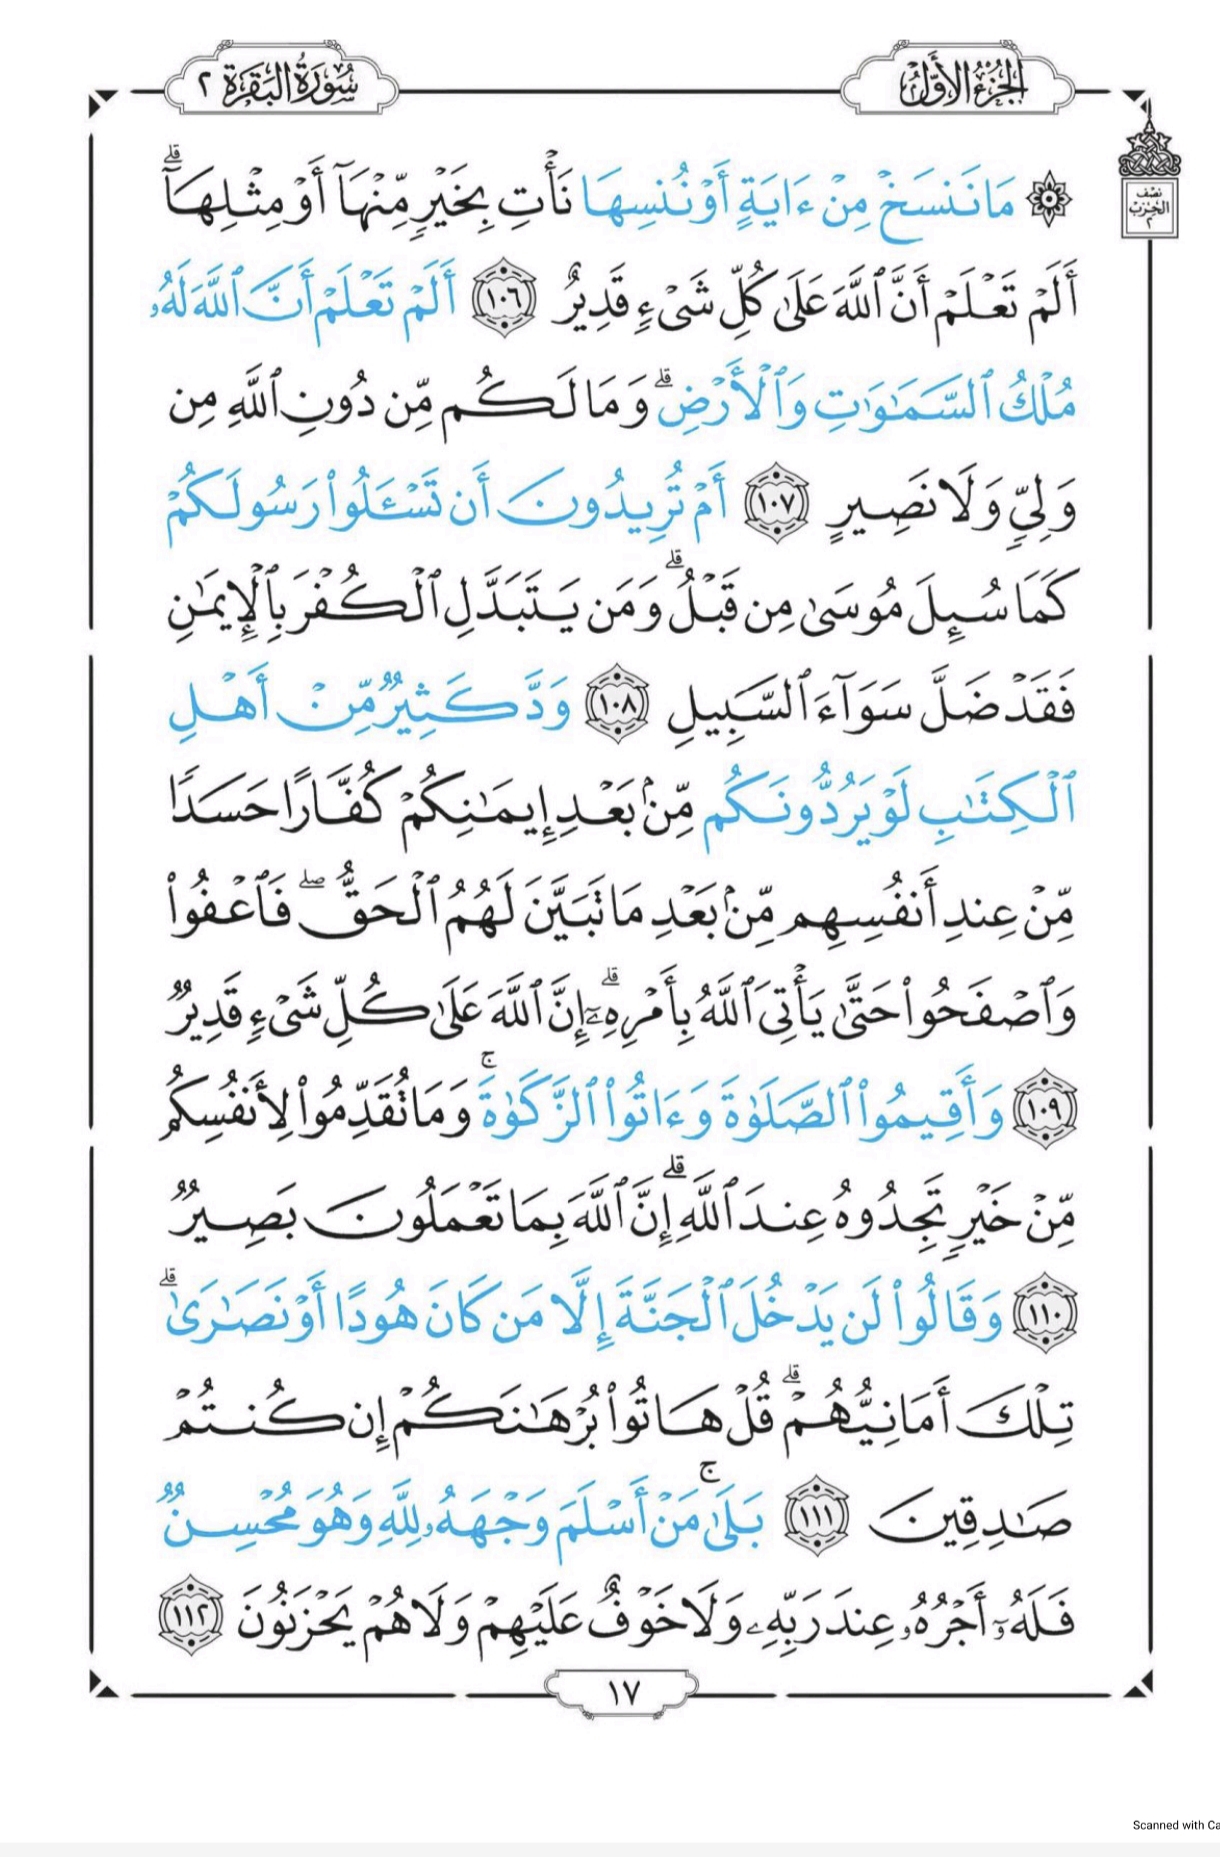 الجزء الأول
سورة البقرة ٢
نصف
الحزب
٢
۞ مَا نَنسَخْ مِنْ ءَايَةٍ أَوْ نُنسِهَا نَأْتِ بِخَيْرٍ مِّنْهَآ أَوْ مِثْلِهَآ ۗ
أَلَمْ تَعْلَمْ أَنَّ ٱللَّهَ عَلَىٰ كُلِّ شَىْءٍ قَدِيرٌ ١٠٦ أَلَمْ تَعْلَمْ أَنَّ ٱللَّهَ لَهُۥ
مُلْكُ ٱلسَّمَـٰوَٰتِ وَٱلْأَرْضِ ۗ وَمَا لَكُم مِّن دُونِ ٱللَّهِ مِن
وَلِىٍّ وَلَا نَصِيرٍ ١٠٧ أَمْ تُرِيدُونَ أَن تَسْـَٔلُوا۟ رَسُولَكُمْ
كَمَا سُئِلَ مُوسَىٰ مِن قَبْلُ ۗ وَمَن يَتَبَدَّلِ ٱلْكُفْرَ بِٱلْإِيمَـٰنِ
فَقَدْ ضَلَّ سَوَآءَ ٱلسَّبِيلِ ١٠٨ وَدَّ كَثِيرٌ مِّنْ أَهْلِ
ٱلْكِتَـٰبِ لَوْ يَرُدُّونَكُم مِّنۢ بَعْدِ إِيمَـٰنِكُمْ كُفَّارًا حَسَدًا
مِّنْ عِندِ أَنفُسِهِم مِّنۢ بَعْدِ مَا تَبَيَّنَ لَهُمُ ٱلْحَقُّ ۖ فَٱعْفُوا۟
وَٱصْفَحُوا۟ حَتَّىٰ يَأْتِىَ ٱللَّهُ بِأَمْرِهِۦٓ ۗ إِنَّ ٱللَّهَ عَلَىٰ كُلِّ شَىْءٍ قَدِيرٌ
١٠٩ وَأَقِيمُوا۟ ٱلصَّلَوٰةَ وَءَاتُوا۟ ٱلزَّكَوٰةَ ۚ وَمَا تُقَدِّمُوا۟ لِأَنفُسِكُم
مِّنْ خَيْرٍ تَجِدُوهُ عِندَ ٱللَّهِ ۗ إِنَّ ٱللَّهَ بِمَا تَعْمَلُونَ بَصِيرٌ
١١٠ وَقَالُوا۟ لَن يَدْخُلَ ٱلْجَنَّةَ إِلَّا مَن كَانَ هُودًا أَوْ نَصَـٰرَىٰ ۗ
تِلْكَ أَمَانِيُّهُمْ ۗ قُلْ هَاتُوا۟ بُرْهَـٰنَكُمْ إِن كُنتُمْ
صَـٰدِقِينَ ١١١ بَلَىٰ ۚ مَنْ أَسْلَمَ وَجْهَهُۥ لِلَّهِ وَهُوَ مُحْسِنٌ
فَلَهُۥٓ أَجْرُهُۥ عِندَ رَبِّهِۦ وَلَا خَوْفٌ عَلَيْهِمْ وَلَا هُمْ يَحْزَنُونَ ١١٢
١٧
Scanned with Ca